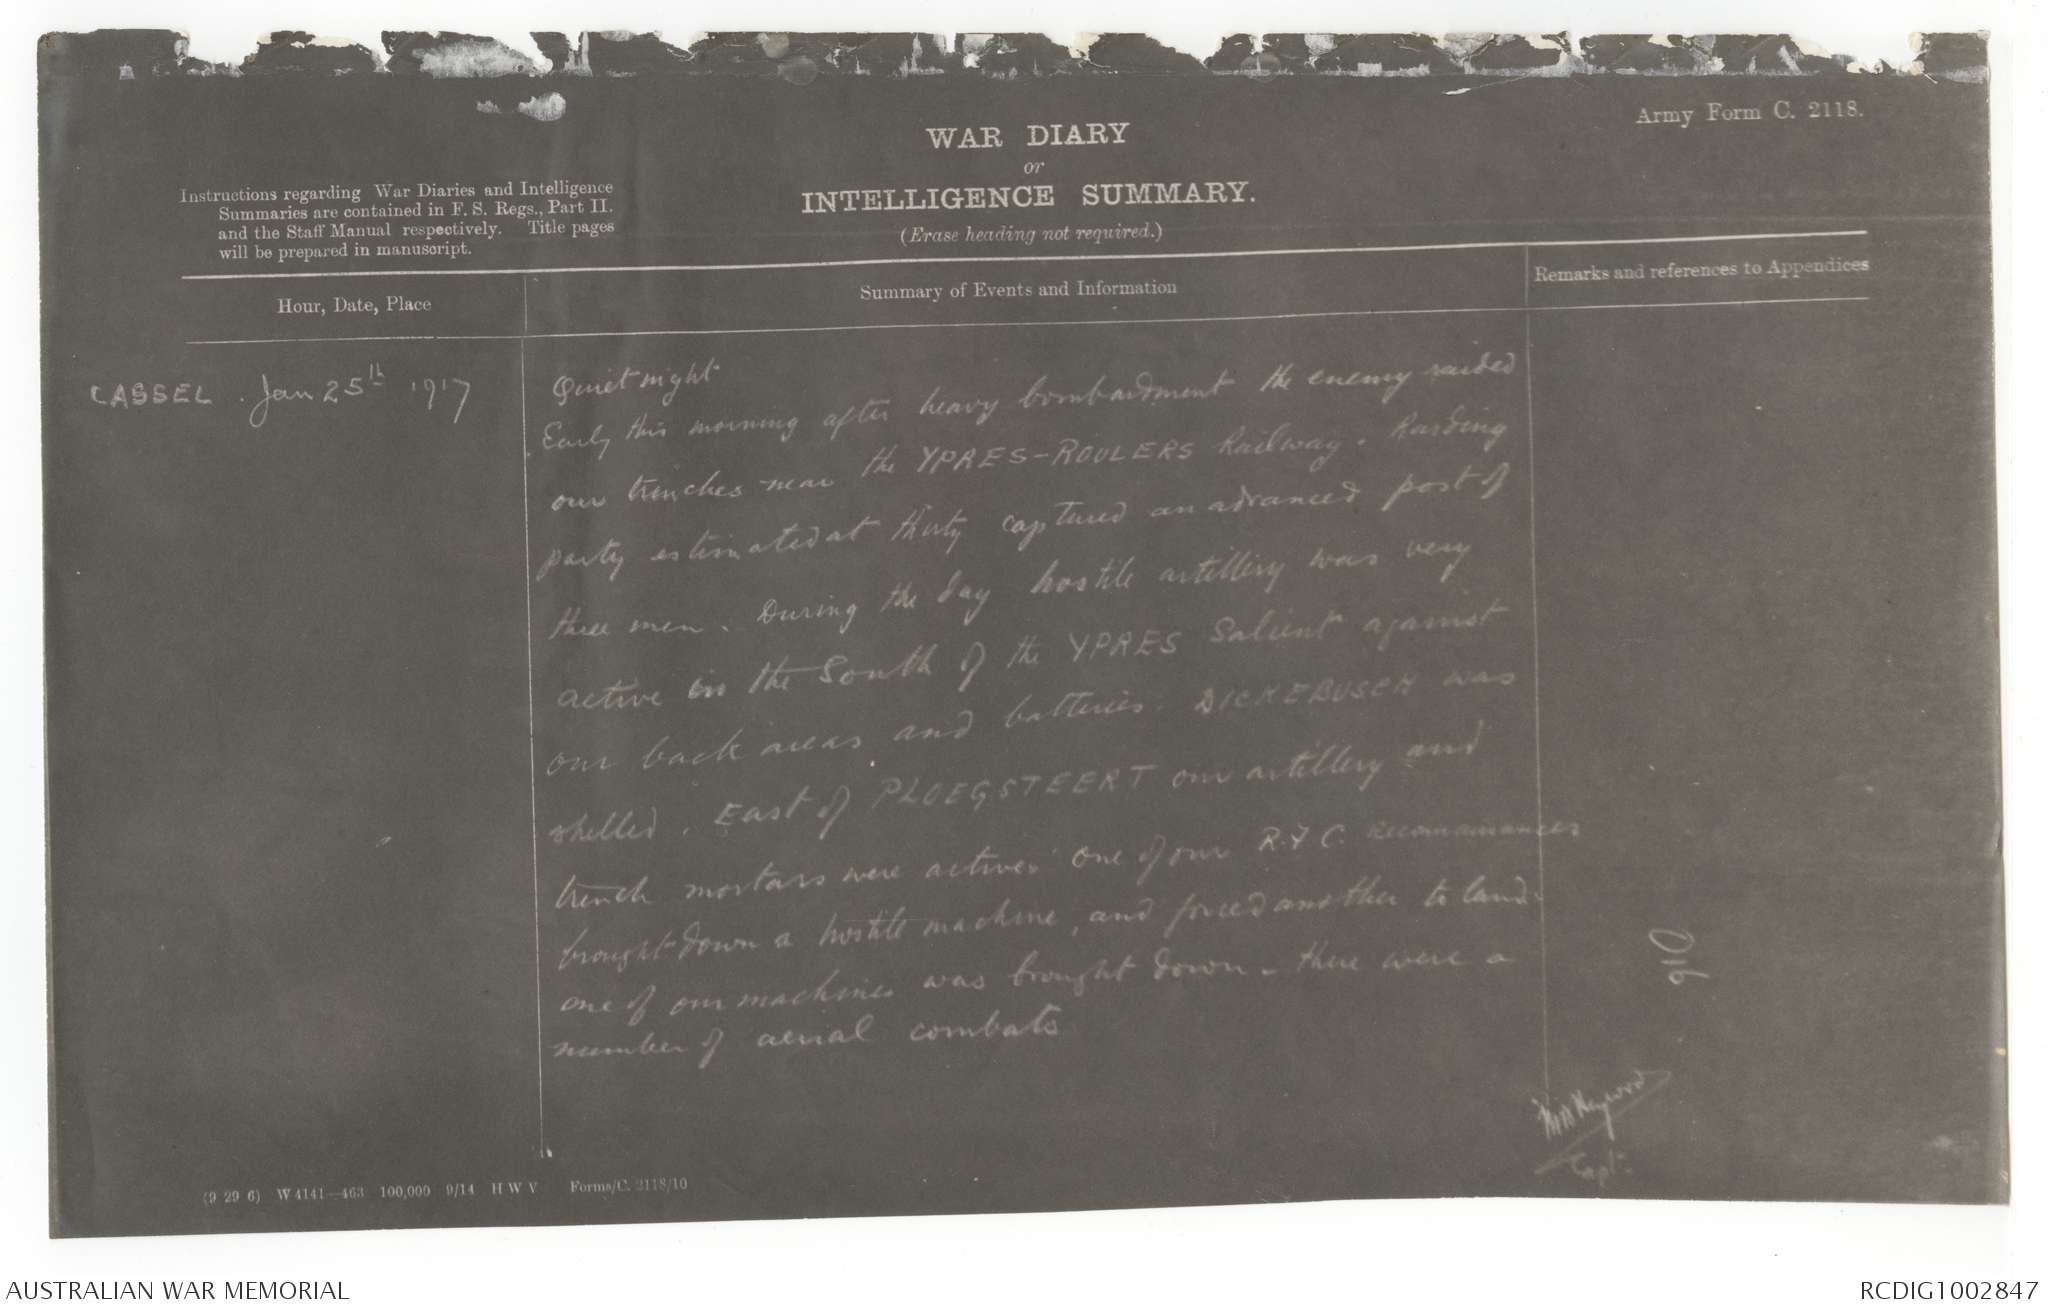 Army Form C. 2118.
WAR DIARY
or
INTELLIGENCE SUMMARY.
(Erase heading not required.)
Instructions regarding War Diaries and Intelligence
Summaries are contained in F. S. Regs., Part II.
and the Staff Manual respectively. Title pages
will be prepared in manuscript.
Hour, Date, Place
Summary of Events and Information
Remarks and references to Appendices
CASSEL. Jan 25th 1917
Quiet night
Early this morning after heavy bombardment the enemy raided
our trenches near the YPRES-ROULERS Railway. Raiding
party estimated at thirty captured an advanced post of
three men. During the day hostile artillery was very
active in the South of the YPRES Salient against
our back areas and batteries. DICKEBUSCH was
shelled. East of PLOEGSTEERT our artillery and
trench mortars were active. One of our R.F.C. reconnaissances
brought down a hostile machine, and forced another to land.
one of our machines was brought down. There were a
number of aerial combats
910
Capt.
(9 29 6) W 4141—463 100,000 9/14 H W V Forms/C. 2118/10
AUSTRALIAN WAR MEMORIAL
RCDIG1002847